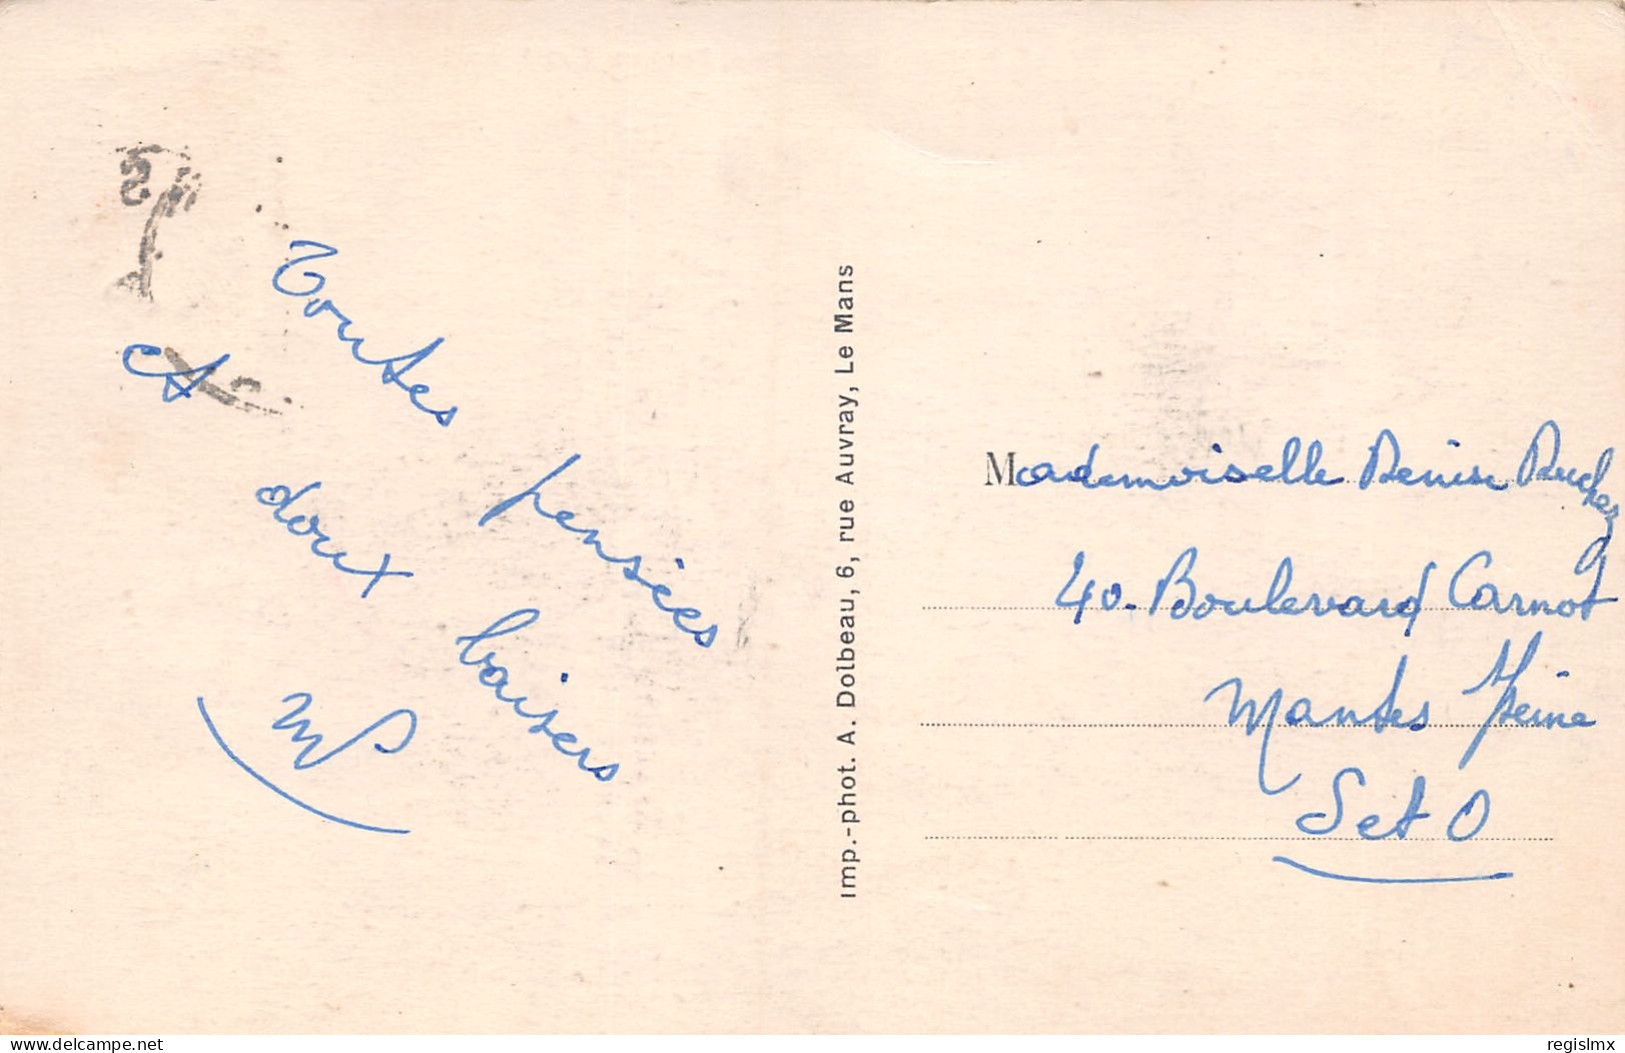 Toutes pensées
et doux baisers
MP
Imp.-phot. A. Dolbeau, 6, rue Auvray, Le Mans
Mademoiselle Denise
40. Boulevard Carnot
Mantes s/Seine
S et O
delcampe.net
regislmx